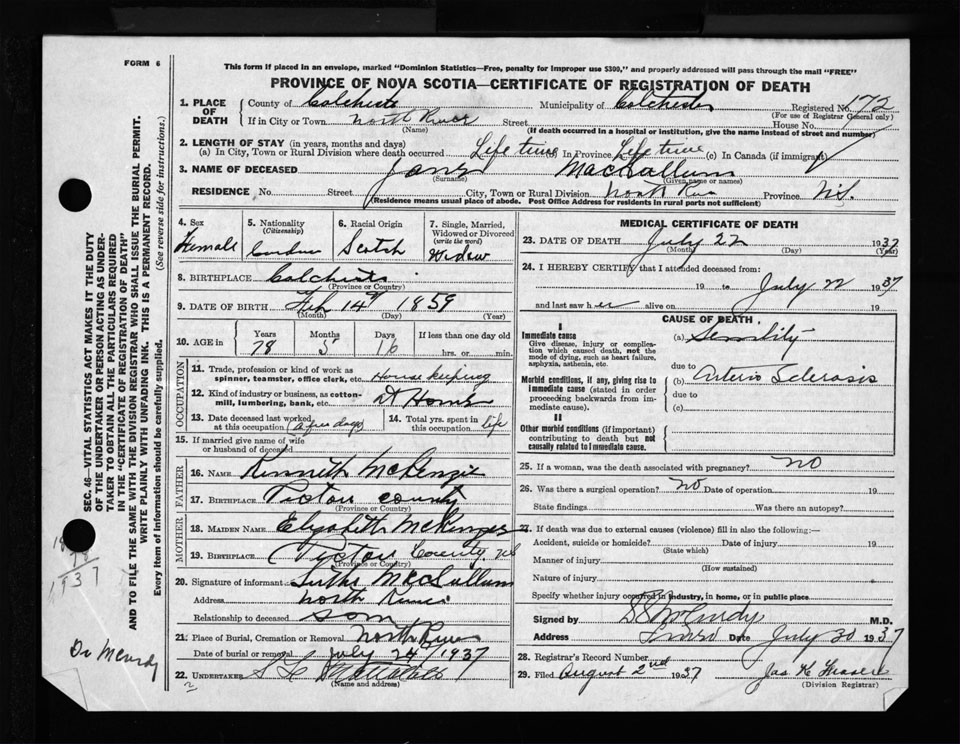 FORM 6
This form if placed in an envelope, marked "Dominion Statistics—Free, penalty for improper use $300," and properly addressed will pass through the mail "FREE"
PROVINCE OF NOVA SCOTIA—CERTIFICATE OF REGISTRATION OF DEATH
1. PLACE OF DEATH County of Colchester Municipality of Colchester Registered No. 172
(For use of Registrar General only)
If in City or Town North River Street House No.
(Name) (If death occurred in a hospital or institution, give the name instead of street and number)
2. LENGTH OF STAY (in years, months and days)
(a) In City, Town or Rural Division where death occurred Life time (b) In Province Life time (c) In Canada (if immigrant)
3. NAME OF DECEASED Jane MacCallum
(Surname) (Given name or names)
RESIDENCE No. Street City, Town or Rural Division North River Province N.S.
(Residence means usual place of abode. Post Office Address for residents in rural parts not sufficient)
4. Sex Female
5. Nationality (Citizenship)
6. Racial Origin Scotch
7. Single, Married, Widowed or Divorced (write the word) Widow
8. BIRTHPLACE Colchester
(Province or Country)
9. DATE OF BIRTH Feb 14th 1859
(Month) (Day) (Year)
10. AGE in Years 78 Months 5 Days 16 If less than one day old hrs. or min.
OCCUPATION
11. Trade, profession or kind of work as spinner, teamster, office clerk, etc. House Keeping
12. Kind of industry or business, as cotton-mill, lumbering, bank, etc. At Home
13. Date deceased last worked at this occupation (a few days)
14. Total yrs. spent in this occupation life
15. If married give name of wife or husband of deceased
FATHER
16. NAME Kenneth McKenzie
17. BIRTHPLACE Pictou County
(Province or Country)
MOTHER
18. MAIDEN NAME Elizabeth McKenzie
19. BIRTHPLACE Pictou County NS
(Province or Country)
20. Signature of informant McCallum
Address North River
Relationship to deceased Son
21. Place of Burial, Cremation or Removal North River
Date of burial or removal July 24th 1937
22. UNDERTAKER
(Name and address)
MEDICAL CERTIFICATE OF DEATH
23. DATE OF DEATH July 22 1937
(Month) (Day) (Year)
24. I HEREBY CERTIFY that I attended deceased from:
19 to July 22 1937
and last saw her alive on 19
CAUSE OF DEATH
I
Immediate cause
Give disease, injury or complication which caused death, not the mode of dying, such as heart failure, asphyxia, asthenia, etc.
(a) Senility
due to
Morbid conditions, if any, giving rise to immediate cause (stated in order proceeding backwards from immediate cause).
(b) Arterio Sclerosis
due to
(c)
II
Other morbid conditions (if important) contributing to death but not causally related to immediate cause.
25. If a woman, was the death associated with pregnancy? NO
26. Was there a surgical operation? NO Date of operation 19
State findings Was there an autopsy?
27. If death was due to external causes (violence) fill in also the following:—
Accident, suicide or homicide? Date of injury 19
(State which)
Manner of injury
(How sustained)
Nature of injury
Specify whether injury occurred in industry, in home, or in public place
Signed by McCurdy M.D.
Address Truro Date July 30 1937
28. Registrar's Record Number
29. Filed August 2nd 1937 Jas K Fraser
(Division Registrar)
SEC. 46—VITAL STATISTICS ACT MAKES IT THE DUTY
OF THE UNDERTAKER OR PERSON ACTING AS UNDER-
TAKER TO OBTAIN ALL THE PARTICULARS REQUIRED
IN THE "CERTIFICATE OF REGISTRATION OF DEATH"
AND TO FILE THE SAME WITH THE DIVISION REGISTRAR WHO SHALL ISSUE THE BURIAL PERMIT.
WRITE PLAINLY WITH UNFADING INK. THIS IS A PERMANENT RECORD.
Every item of Information should be carefully supplied. (See reverse side for instructions.)
1937
Dr McCurdy
2